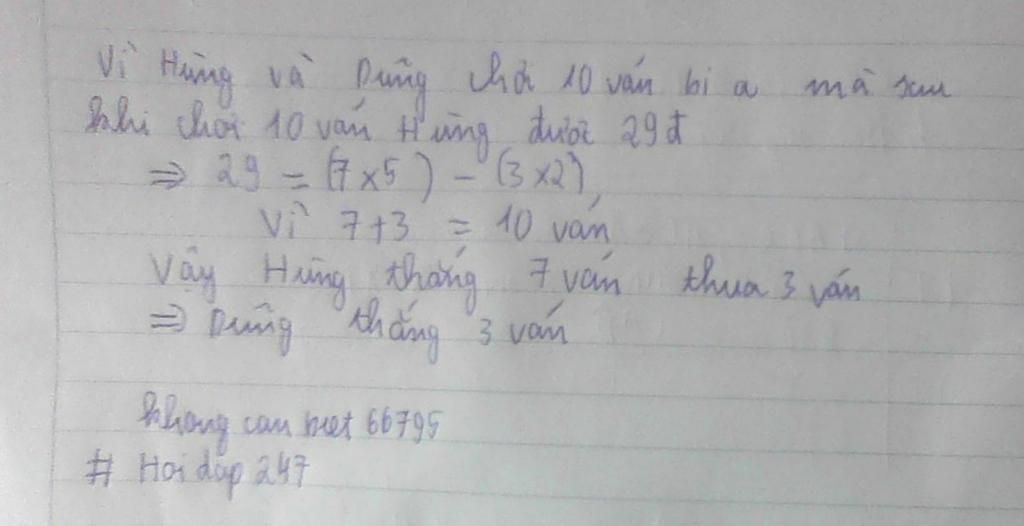 Vì Hùng và Dũng chơi 10 ván bi a mà sau
khi chơi 10 ván Hùng được 29đ
⇒ 29 = (7x5) - (3x2)
Vì 7+3 = 10 ván
Vậy Hùng thắng 7 ván thua 3 ván
⇒ Dũng thắng 3 ván
khong can biet 66795
# Hoi dap 247